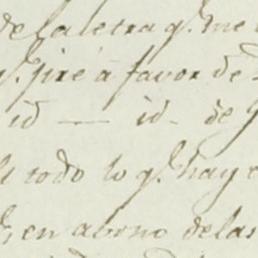 de la letra q.e me
q.e jiré à favor de
id — id. de
todo lo q.e hay
en abono de las